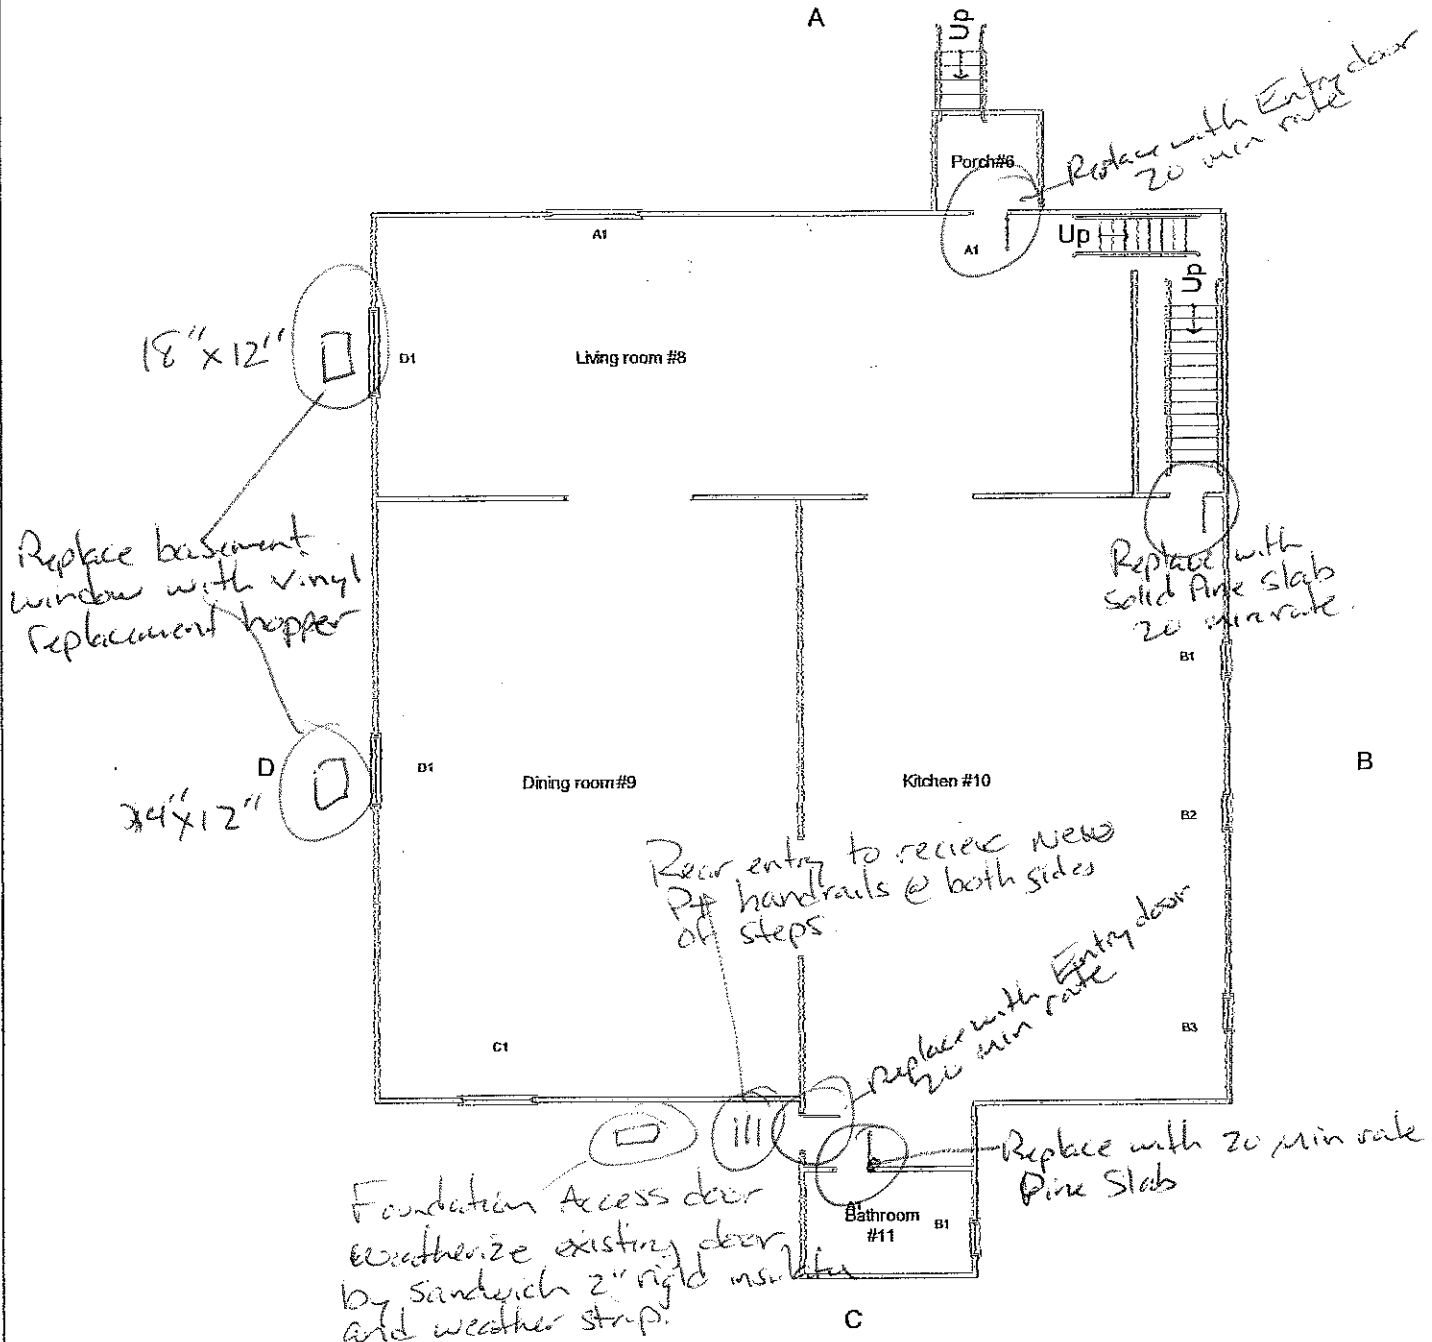 A
Up
Replace with Entry door
20 min rate
Porch#6
A1
A1
Up
Up
18"x12"
D1
Living room #8
Replace basement
window with vinyl
replacement hopper
Replace with
Solid Pine Slab
20 min rate.
B1
D
D1
Dining room #9
Kitchen #10
B
x12"
B2
Rear entry to recieve New
handrails @ both sides
of steps.
Replace with Entry door
20 min rate
B3
C1
Replace with 20 min rate
Pine Slab
Foundation Access door
Weatherize existing door
by Sandwich 2" rigid insulation
and weather strip.
A1
Bathroom
#11
B1
C